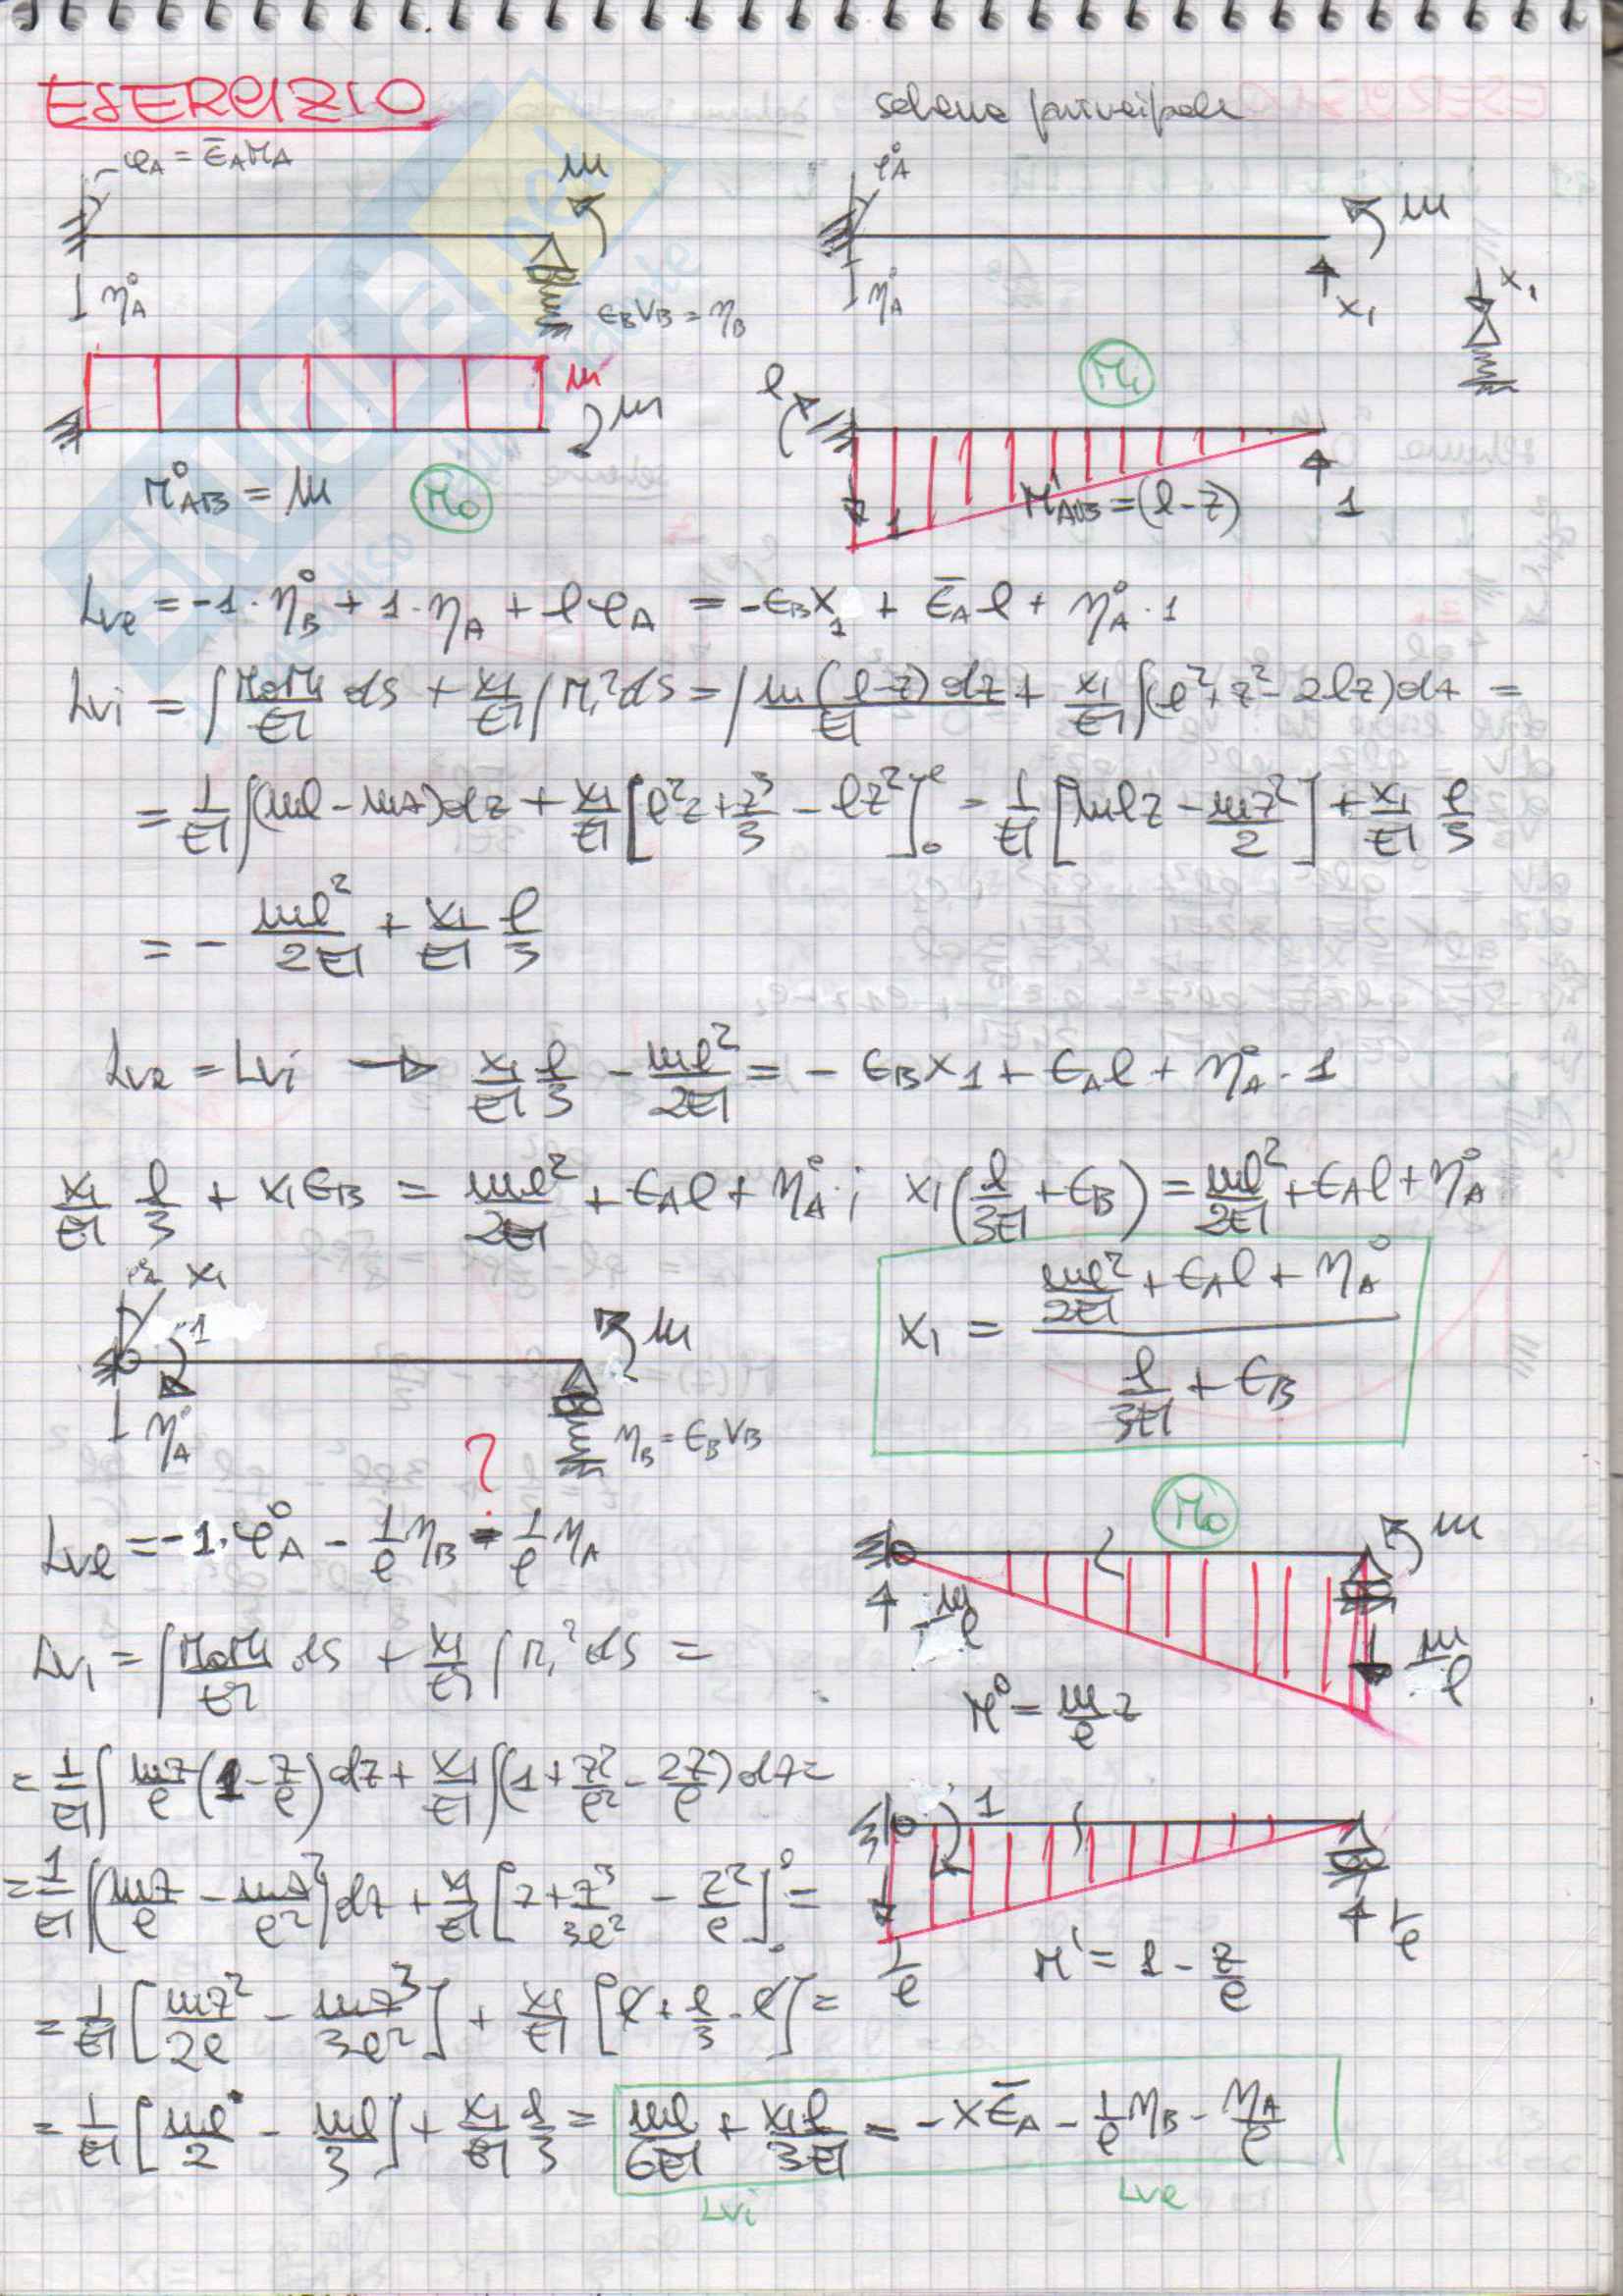 ESERCIZIO
schema principale
φA = ε̄A MA
m
η°A
εB VB = ηB
φ°A
m
η°A
X1
X1
m
m
M°AB = m
M0
l
M1
M'AB = (l-z)
1
1
Lve = -1·η°B + 1·ηA + lφA = -εB X1 + ε̄A l + η°A·1
Lvi = ∫ M0M1/EI ds + X1/EI ∫ M1² ds = ∫ m(l-z)dz/EI + X1/EI ∫(l²+z²-2lz)dz =
= 1/EI ∫(ml-mz)dz + X1/EI [l²z + z³/3 - lz²]₀ˡ = 1/EI [mlz - mz²/2] + X1/EI l/3
= - ml²/2EI + X1/EI l/3
Lve = Lvi → X1/EI l/3 - ml²/2EI = - εB X1 + εA l + η°A·1
X1/EI l/3 + X1 εB = ml²/2EI + εA l + η°A ; X1(l/3EI + εB) = ml²/2EI + εA l + η°A
X1 = (ml²/2EI + εA l + η°A) / (l/3EI + εB)
X1
1
m
η°A
ηB = εB VB
?
Lve = -1·φ°A - 1/l ηB - 1/l ηA
M0
m
m/l
m/l
M° = m/l z
Lvi = ∫ M0M1/EI ds + X1/EI ∫ M1² ds =
= 1/EI ∫ mz/l (1 - z/l) dz + X1/EI ∫(1 + z²/l² - 2z/l) dz =
1
= 1/EI ∫(mz/l - mz²/l²) dz + X1/EI [z + z³/3l² - z²/l]₀ˡ =
1/l
1/l
M' = 1 - z/l
= 1/EI [mz²/2l - mz³/3l²] + X1/EI [l + l/3 - l] =
= 1/EI [ml/2 - ml/3] + X1/EI l/3 = ml/6EI + X1l/3EI = -Xε̄A - 1/l ηB - ηA/l
Lvi
Lve